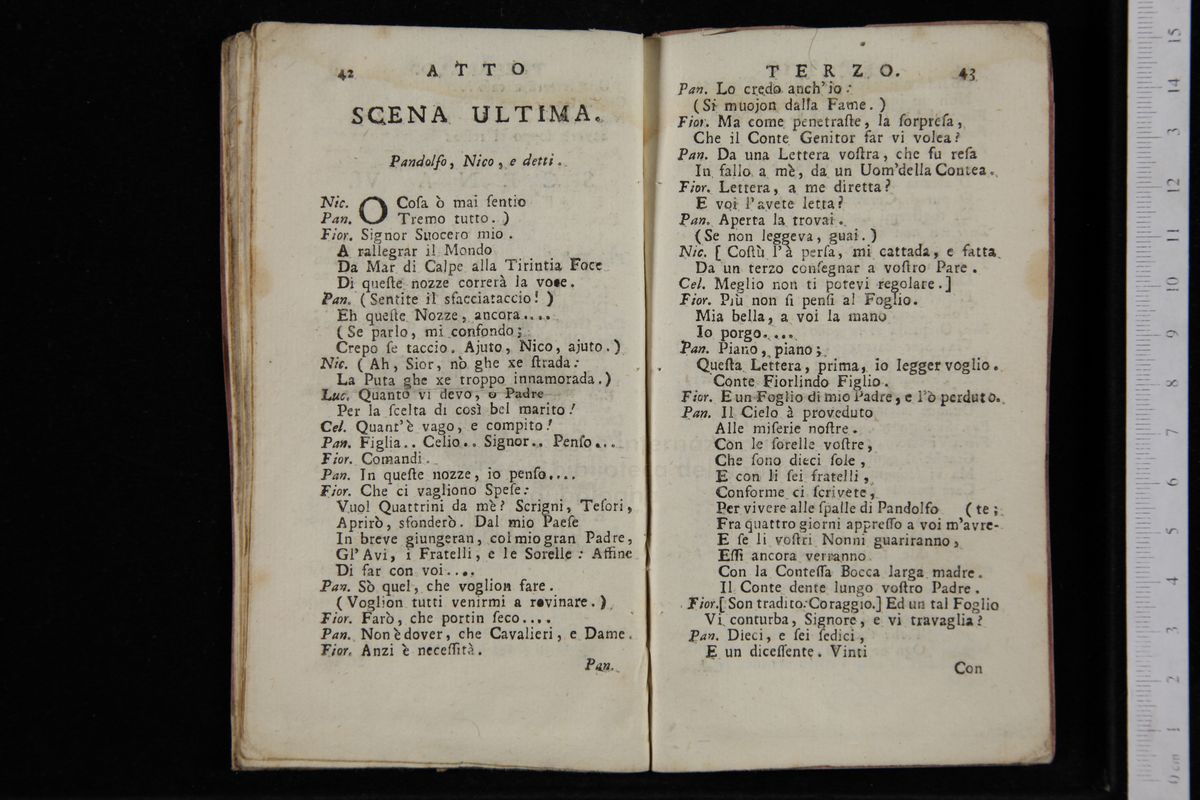 42 ATTO
SCENA ULTIMA.
Pandolfo, Nico, e detti.
Nic. O Coſa ò mai ſentio
Pan. Tremo tutto. )
Fior. Signor Suocero mio.
A rallegrar il Mondo
Da Mar di Calpe alla Tirintia Foce
Di queſte nozze correrà la voce.
Pan. (Sentite il sfacciataccio! )
Eh queſte Nozze, ancora....
(Se parlo, mi confondo;
Crepo ſe taccio. Ajuto, Nico, ajuto.)
Nic. (Ah, Sior, nò ghe xe ſtrada:
La Puta ghe xe troppo innamorada.)
Luc. Quanto vi devo, o Padre
Per la ſcelta di così bel marito!
Cel. Quant'è vago, e compito!
Pan. Figlia.. Celio.. Signor.. Penſo...
Fior. Comandi.
Pan. In queſte nozze, io penſo....
Fior. Che ci vagliono Speſe:
Vuol Quattrini da mè? Scrigni, Teſori,
Aprirò, sfonderò. Dal mio Paeſe
In breve giungeran, col mio gran Padre,
Gl'Avi, i Fratelli, e le Sorelle: Affine
Di far con voi....
Pan. Sò quel, che voglion fare.
(Voglion tutti venirmi a rovinare.)
Fior. Farò, che portin ſeco....
Pan. Non è dover, che Cavalieri, e Dame.
Fior. Anzi è neceſſità.
Pan.
TERZO. 43
Pan. Lo credo anch'io:
(Si muojon dalla Fame.)
Fior. Ma come penetraſte, la ſorpreſa,
Che il Conte Genitor far vi volea?
Pan. Da una Lettera voſtra, che fu reſa
In fallo a mè, da un Uom'della Contea.
Fior. Lettera, a me diretta?
E voi l'avete letta?
Pan. Aperta la trovai.
(Se non leggeva, guai.)
Nic. [ Coſtù l'à perſa, mi cattada, e fatta
Da un terzo conſegnar a voſtro Pare.
Cel. Meglio non ti potevi regolare.]
Fior. Più non ſi penſi al Foglio.
Mia bella, a voi la mano
Io porgo....
Pan. Piano, piano;
Queſta Lettera, prima, io legger voglio.
Conte Fiorlindo Figlio.
Fior. E un Foglio di mio Padre, e l'ò perduto.
Pan. Il Cielo à proveduto
Alle miſerie noſtre.
Con le ſorelle voſtre,
Che ſono dieci ſole,
E con li ſei fratelli,
Conforme ci ſcrivete,
Per vivere alle ſpalle di Pandolfo (te;
Fra quattro giorni appreſſo a voi m'avre-
E ſe li voſtri Nonni guariranno,
Eſſi ancora verranno
Con la Conteſſa Bocca larga madre.
Il Conte dente lungo voſtro Padre.
Fior.[ Son tradito: Coraggio.] Ed un tal Foglio
Vi conturba, Signore, e vi travaglia?
Pan. Dieci, e ſei ſedici,
E un diceſſente. Vinti
Con